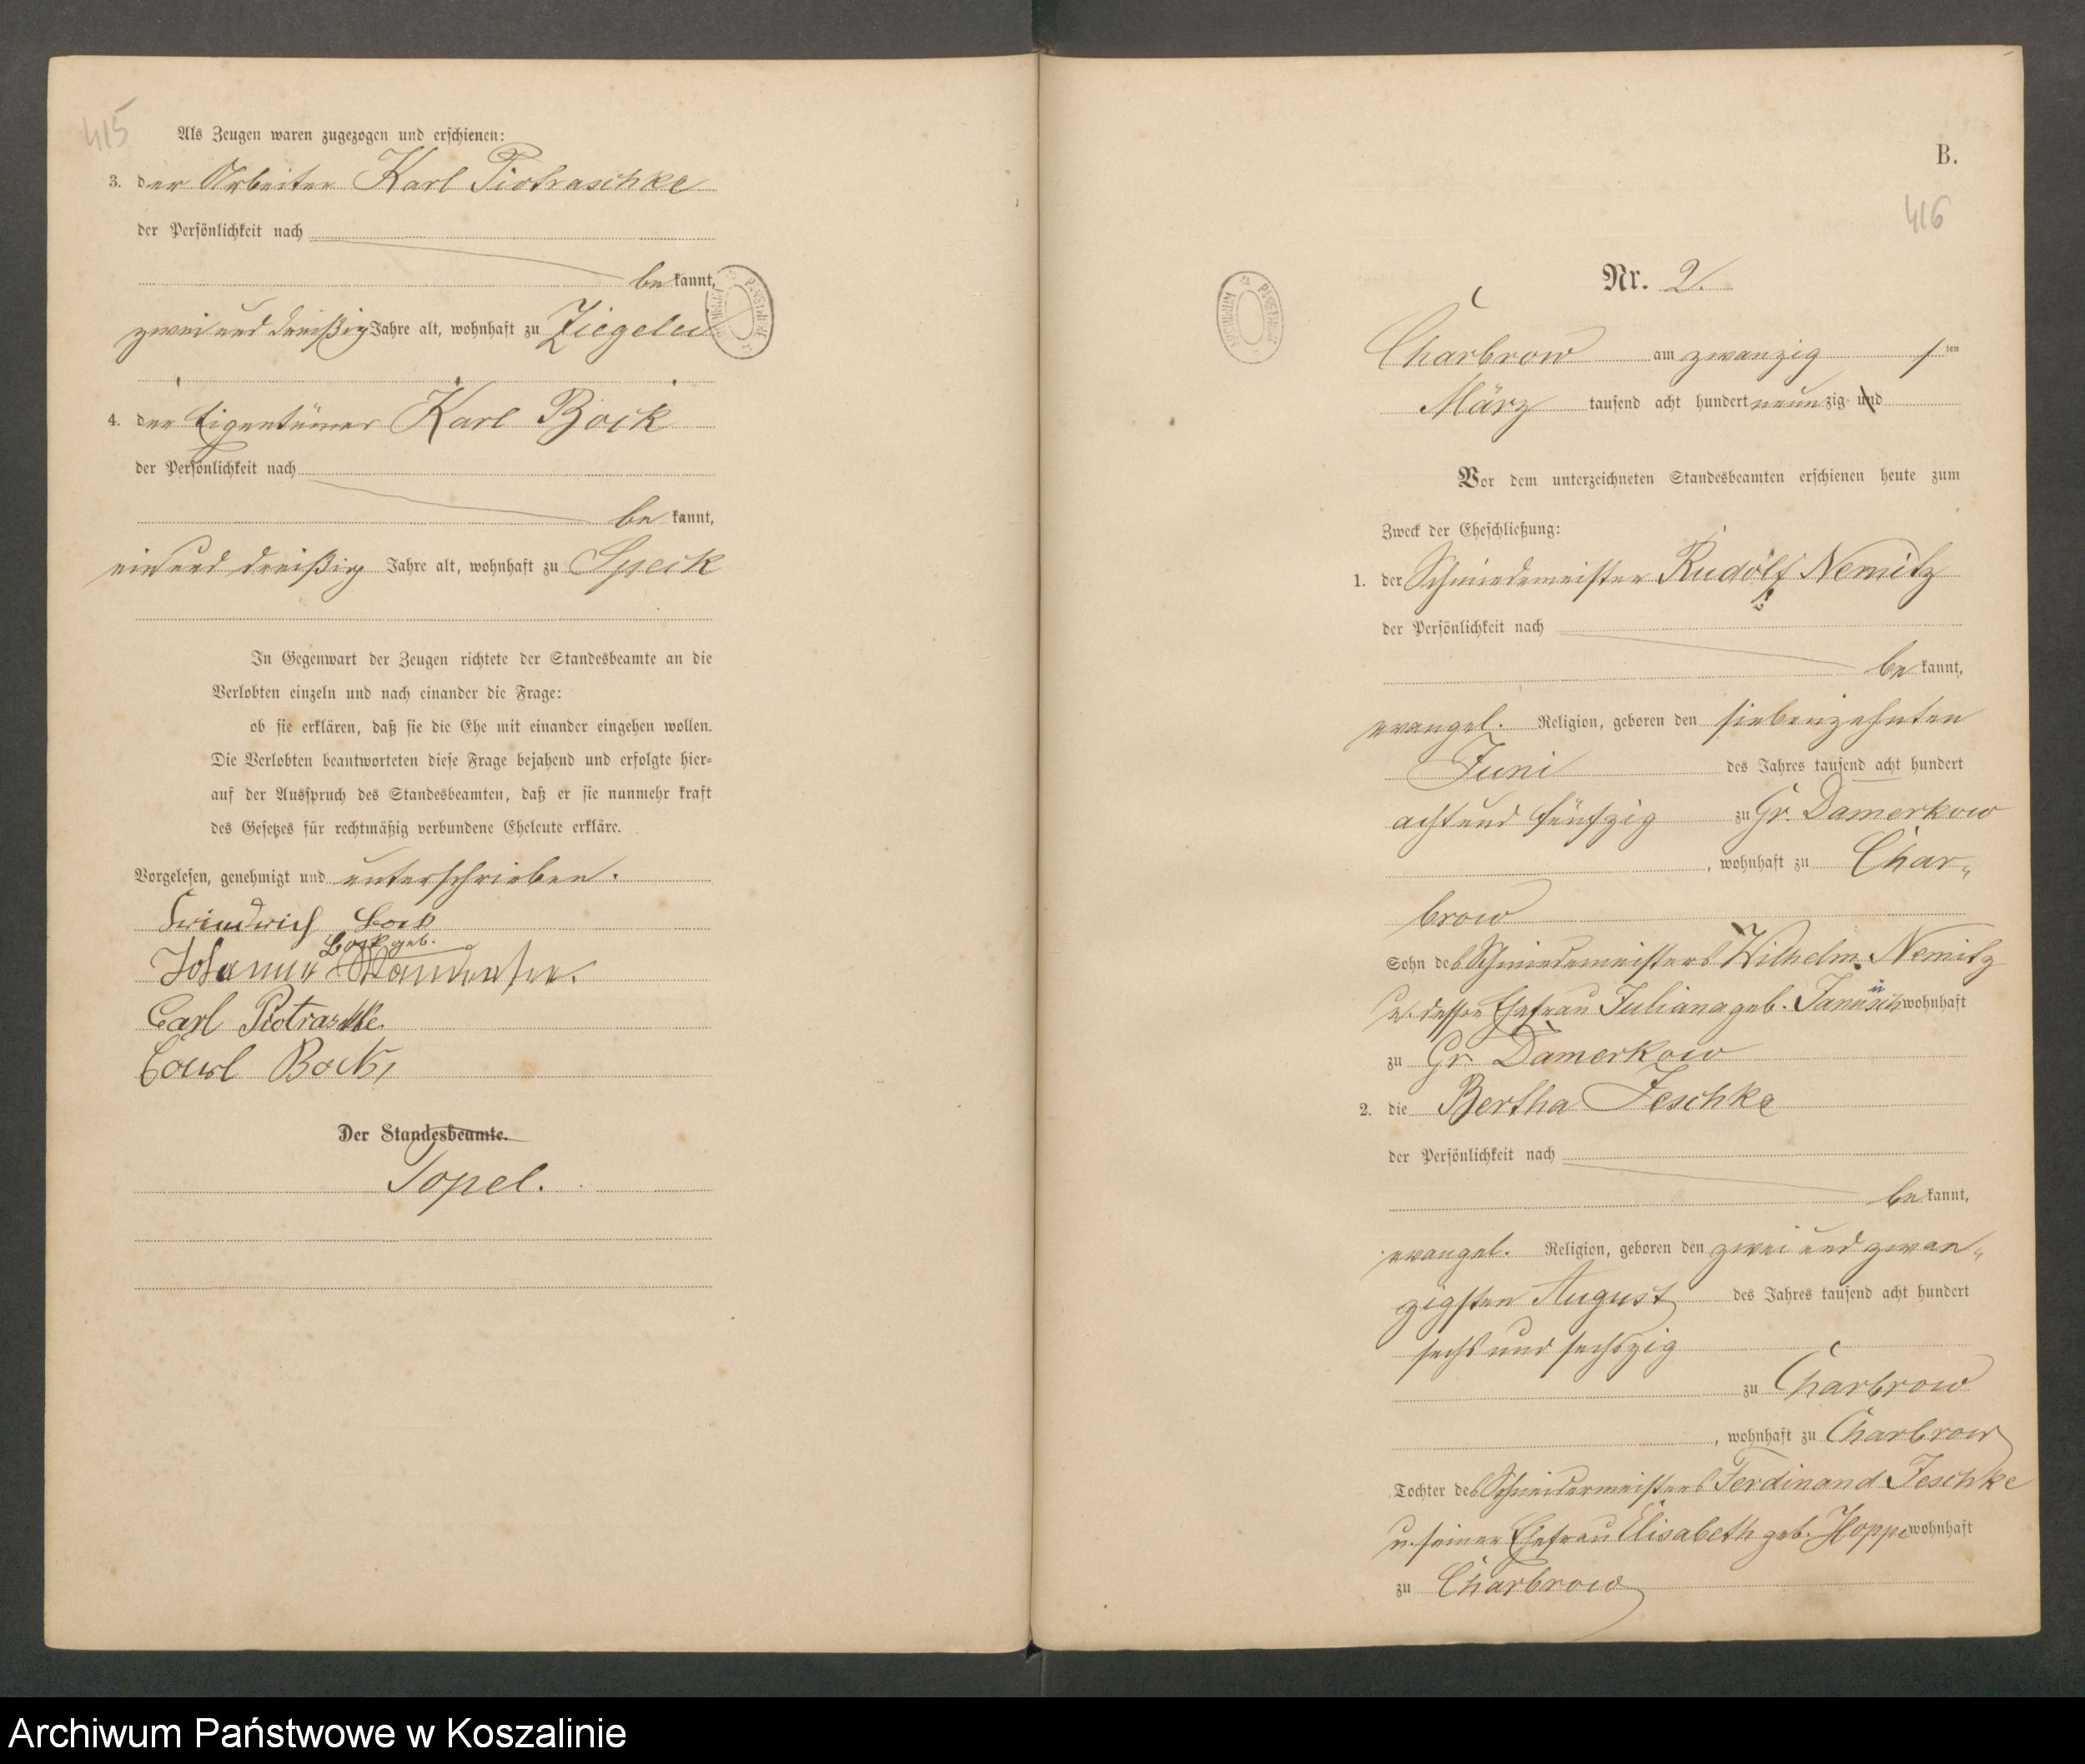 415
Als Zeugen waren zugezogen und erschienen:
3. der Arbeiter Karl Piotraschke
der Persönlichkeit nach
be kannt,
zwei und dreißig Jahre alt, wohnhaft zu Ziegelei
4. der Eigentümer Karl Bock
der Persönlichkeit nach
be kannt,
ein und dreißig Jahre alt, wohnhaft zu Speck
In Gegenwart der Zeugen richtete der Standesbeamte an die
Verlobten einzeln und nach einander die Frage:
ob sie erklären, daß sie die Ehe mit einander eingehen wollen.
Die Verlobten beantworteten diese Frage bejahend und erfolgte hier-
auf der Ausspruch des Standesbeamten, daß er sie nunmehr kraft
des Gesetzes für rechtmäßig verbundene Eheleute erkläre.
Vorgelesen, genehmigt und unterschrieben.
Friedrich Bock
Bock geb.
Johanna
Carl Piotraschke
Carl Bock,
Der Standesbeamte.
Topel.
B.
416
Nr. 2.
Charbrow am zwanzig ten
März tausend acht hundert neunzig und
Vor dem unterzeichneten Standesbeamten erschienen heute zum
Zweck der Eheschließung:
1. der Schmiedemeister Rudolf Nemitz
der Persönlichkeit nach
be kannt,
evangel. Religion, geboren den siebenzehnten
Juni des Jahres tausend acht hundert
acht und fünfzig zu Gr. Damerkow
, wohnhaft zu Char-
brow
Sohn des Schmiedemeisters Wilhelm Nemitz
u. dessen Ehefrau Juliana geb. Janusch wohnhaft
zu Gr. Damerkow
2. die Bertha Jeschke
der Persönlichkeit nach
be kannt,
evangel. Religion, geboren den zwei und zwan-
zigsten August des Jahres tausend acht hundert
sechs und sechszig
zu Charbrow
, wohnhaft zu Charbrow
Tochter des Schneidermeisters Ferdinand Jeschke
u. seiner Ehefrau Elisabeth geb. Hoppe wohnhaft
zu Charbrow
Archiwum Państwowe w Koszalinie